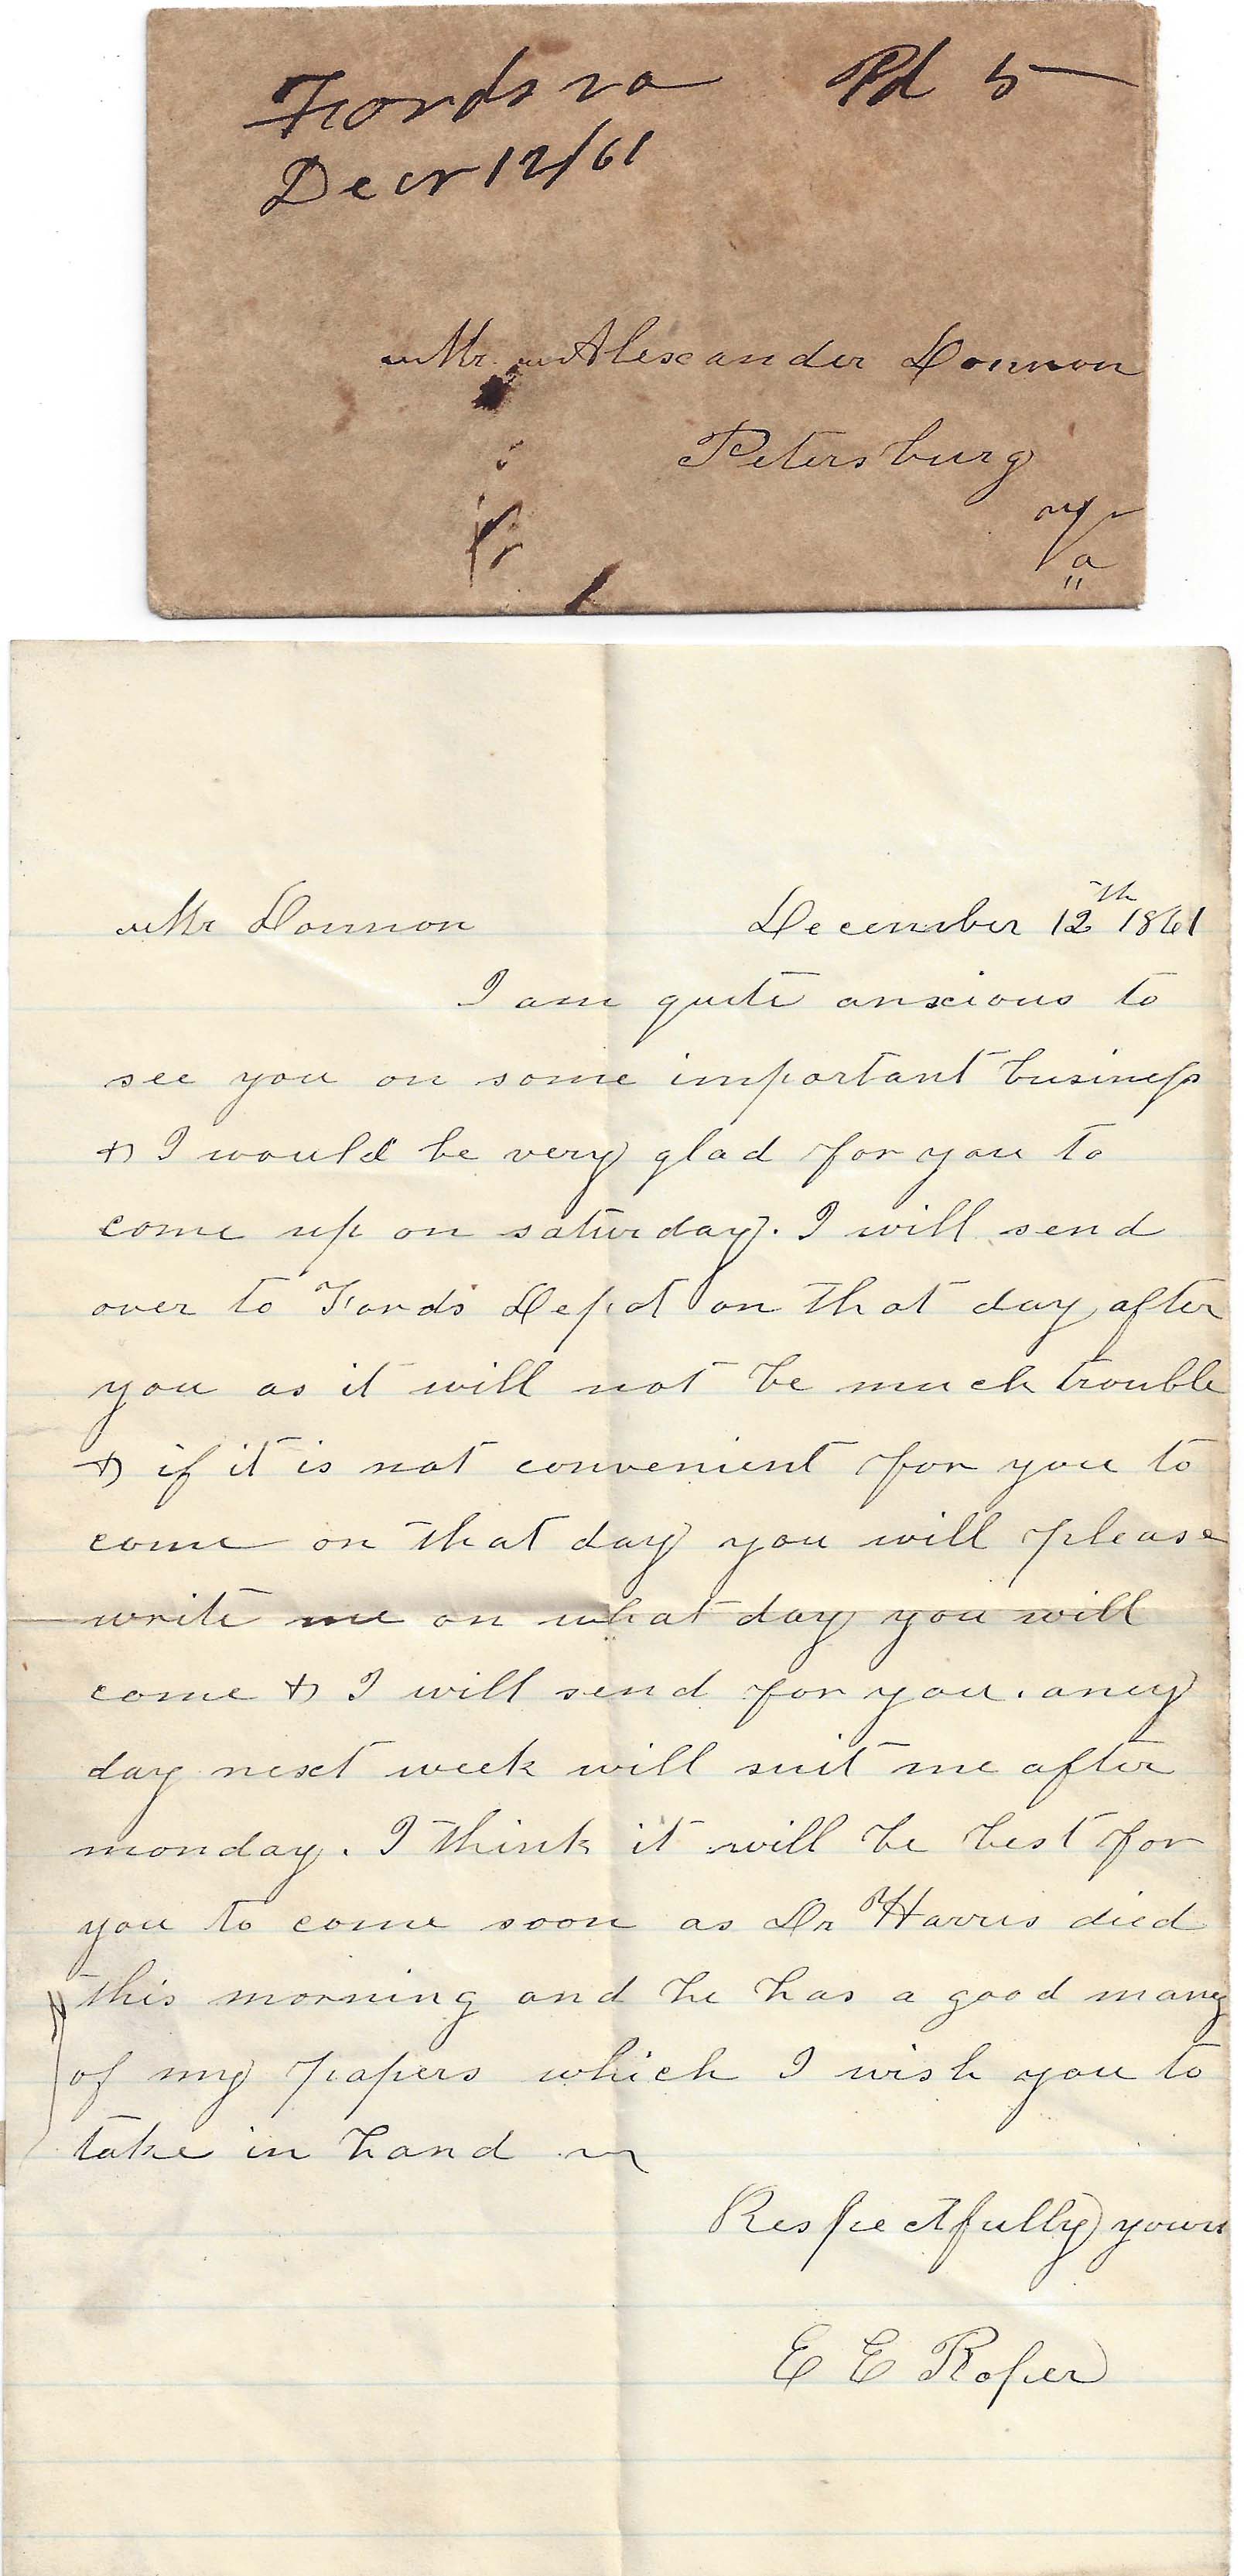 Fords va Pd 5
Decr 12/61
Mr. Alexander Donnon
Petersburg
Va
Mr Donnon December 12th 1861
I am quite anxious to
see you on some important business
& I would be very glad for you to
come up on saturday. I will send
over to Fords Depot on that day after
you as it will not be much trouble
& if it is not convenient for you to
come on that day you will please
write me on what day you will
come & I will send for you. aney
day next week will suit me after
monday. I think it will be best for
you to come soon as Dr Harris died
this morning and he has a good many
of my papers which I wish you to
take in hand
Respectfully yours
E E Roper